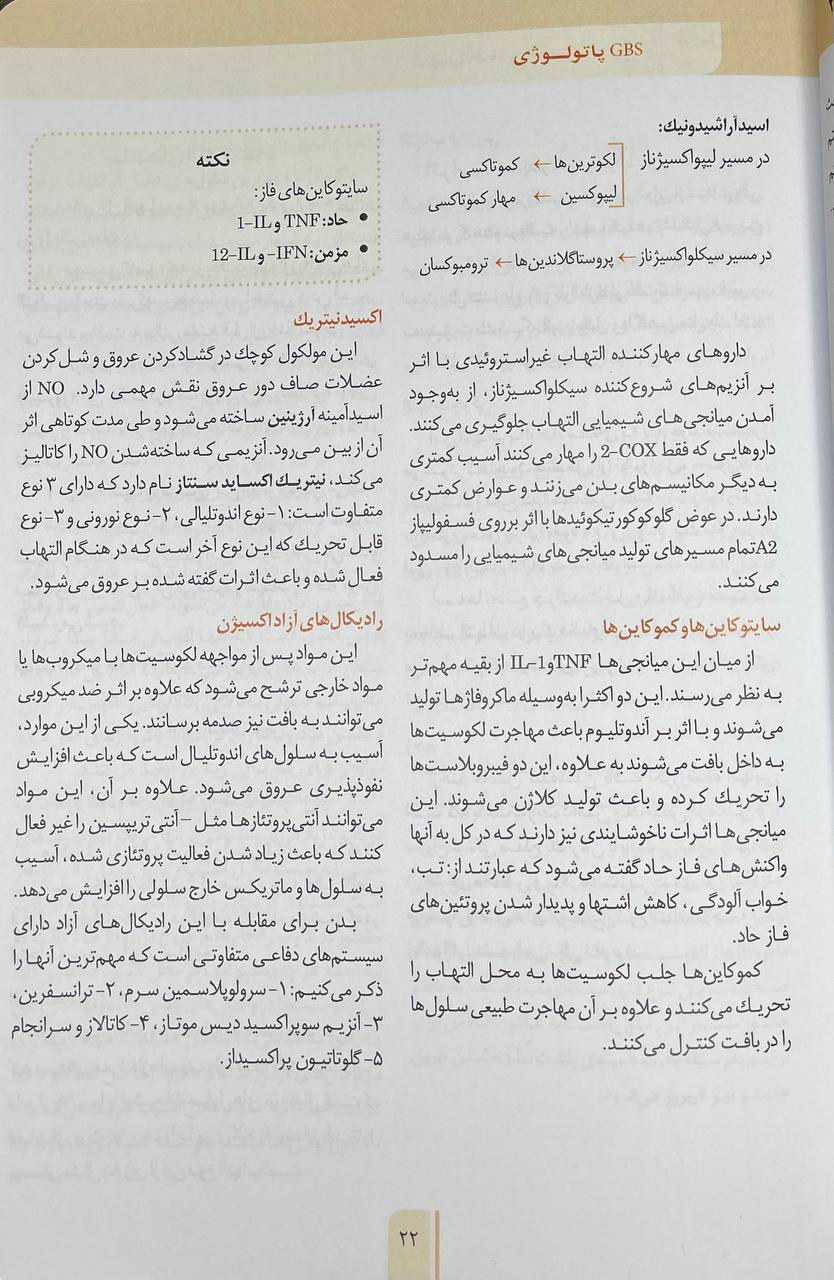 GBS پاتولوژی
اسید آراشیدونیک:
در مسیر لیپواکسیژناز لکوترین‌ها ← کموتاکسی
لیپوکسین ← مهار کموتاکسی
در مسیر سیکلواکسیژناز ← پروستاگلاندین‌ها ← ترومبوکسان
داروهای مهارکننده التهاب غیراستروئیدی با اثر
بر آنزیم‌های شروع‌کننده سیکلواکسیژناز، از به‌وجود
آمدن میانجی‌های شیمیایی التهاب جلوگیری می‌کنند.
داروهایی که فقط 2-COX را مهار می‌کنند آسیب کمتری
به دیگر مکانیسم‌های بدن می‌زنند و عوارض کمتری
دارند. در عوض گلوکوکورتیکوئیدها با اثر برروی فسفولیپاز
A2 تمام مسیرهای تولید میانجی‌های شیمیایی را مسدود
می‌کنند.
سایتوکاین‌ها و کموکاین‌ها
از میان این میانجی‌ها TNF و IL-1 از بقیه مهم‌تر
به نظر می‌رسند. این دو اکثرا به‌وسیله ماکروفاژها تولید
می‌شوند و با اثر بر آندوتلیوم باعث مهاجرت لکوسیت‌ها
به داخل بافت می‌شوند به علاوه، این دو فیبروبلاست‌ها
را تحریک کرده و باعث تولید کلاژن می‌شوند. این
میانجی‌ها اثرات ناخوشایندی نیز دارند که در کل به آنها
واکنش‌های فاز حاد گفته می‌شود که عبارتند از: تب،
خواب آلودگی، کاهش اشتها و پدیدار شدن پروتئین‌های
فاز حاد.
کموکاین‌ها جلب لکوسیت‌ها به محل التهاب را
تحریک می‌کنند و علاوه بر آن مهاجرت طبیعی سلول‌ها
را در بافت کنترل می‌کنند.
نکته
سایتوکاین‌های فاز:
• حاد: TNF و 1-IL
• مزمن: IFN- و 12-IL
اکسیدنیتریک
این مولکول کوچک در گشادکردن عروق و شل‌کردن
عضلات صاف دور عروق نقش مهمی دارد. NO از
اسیدآمینه آرژینین ساخته می‌شود و طی مدت کوتاهی اثر
آن از بین می‌رود. آنزیمی که ساخته‌شدن NO را کاتالیز
می‌کند، نیتریک اکساید سنتاز نام دارد که دارای ۳ نوع
متفاوت است: ۱- نوع اندوتلیالی، ۲- نوع نورونی و ۳- نوع
قابل تحریک که این نوع آخر است که در هنگام التهاب
فعال شده و باعث اثرات گفته شده بر عروق می‌شود.
رادیکال‌های آزاد اکسیژن
این مواد پس از مواجهه لکوسیت‌ها با میکروب‌ها یا
مواد خارجی ترشح می‌شود که علاوه بر اثر ضد میکروبی
می‌توانند به بافت نیز صدمه برسانند. یکی از این موارد،
آسیب به سلول‌های اندوتلیال است که باعث افزایش
نفوذپذیری عروق می‌شود. علاوه بر آن، این مواد
می‌توانند آنتی‌پروتئازها مثل –آنتی‌تریپسین را غیر فعال
کنند که باعث زیاد شدن فعالیت پروتئازی شده، آسیب
به سلول‌ها و ماتریکس خارج سلولی را افزایش می‌دهد.
بدن برای مقابله با این رادیکال‌های آزاد دارای
سیستم‌های دفاعی متفاوتی است که مهم‌ترین آنها را
ذکر می‌کنیم: ۱- سرولوپلاسمین سرم، ۲- ترانسفرین،
۳- آنزیم سوپراکسید دیس موتاز، ۴- کاتالاز و سرانجام
۵- گلوتاتیون پراکسیداز.
۲۲